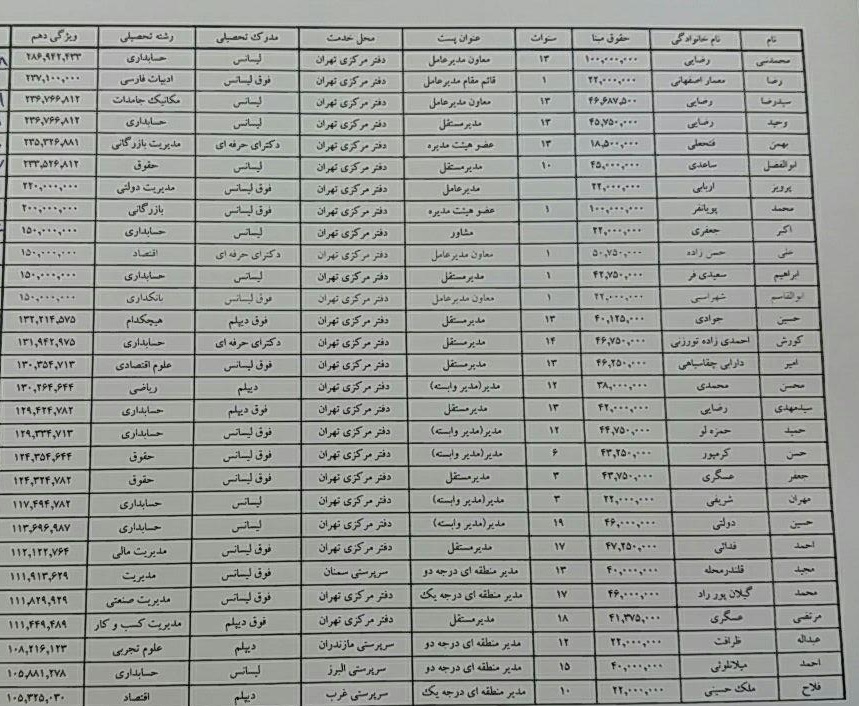 نام نام خانوادگی حقوق مبنا سنوات عنوان پست محل خدمت مدرک تحصیلی رشته تحصیلی ویژگی دهم
محمدتقی رضایی ۱۰۰,۰۰۰,۰۰۰ ۱۳ معاون مدیرعامل دفتر مرکزی تهران لیسانس حسابداری ۲۸۶,۹۴۲,۴۳۳
رضا معمار اصفهانی ۲۲,۰۰۰,۰۰۰ ۱ قائم مقام مدیرعامل دفتر مرکزی تهران فوق لیسانس ادبیات فارسی ۲۳۷,۱۰۰,۰۰۰
سیدرضا رضایی ۴۶,۶۸۷,۵۰۰ ۱۳ معاون مدیرعامل دفتر مرکزی تهران لیسانس مکانیک جامدات ۲۳۶,۷۶۶,۸۱۲
وحید رضایی ۴۵,۷۵۰,۰۰۰ ۱۳ مدیرمستقل دفتر مرکزی تهران لیسانس حسابداری ۲۳۶,۷۶۶,۸۱۲
بهمن فتحعلی ۱۸,۵۰۰,۰۰۰ ۱۳ عضو هیئت مدیره دفتر مرکزی تهران دکترای حرفه ای مدیریت بازرگانی ۲۳۵,۳۲۶,۸۸۱
ابوالفضل ساعدی ۴۵,۰۰۰,۰۰۰ ۱۰ مدیرمستقل دفتر مرکزی تهران لیسانس حقوق ۲۳۳,۵۲۶,۸۱۲
پرویز اربابی ۲۲,۰۰۰,۰۰۰ مدیرعامل دفتر مرکزی تهران فوق لیسانس مدیریت دولتی ۲۲۰,۰۰۰,۰۰۰
محمد پویانفر ۱۰۰,۰۰۰,۰۰۰ ۱ عضو هیئت مدیره دفتر مرکزی تهران فوق لیسانس بازرگانی ۲۰۰,۰۰۰,۰۰۰
اکبر جعفری ۲۲,۰۰۰,۰۰۰ مشاور دفتر مرکزی تهران لیسانس حسابداری ۱۵۰,۰۰۰,۰۰۰
علی حسن زاده ۵۰,۷۵۰,۰۰۰ ۱ معاون مدیرعامل دفتر مرکزی تهران دکترای حرفه ای اقتصاد ۱۵۰,۰۰۰,۰۰۰
ابراهیم سعیدی فر ۴۲,۷۵۰,۰۰۰ ۱ مدیرمستقل دفتر مرکزی تهران لیسانس حسابداری ۱۵۰,۰۰۰,۰۰۰
ابوالقاسم شهراسبی ۲۲,۰۰۰,۰۰۰ ۱ معاون مدیرعامل دفتر مرکزی تهران فوق لیسانس بانکداری ۱۵۰,۰۰۰,۰۰۰
حسین جوادی ۴۰,۱۲۵,۰۰۰ ۱۳ مدیرمستقل دفتر مرکزی تهران فوق دیپلم هیچکدام ۱۳۲,۲۱۴,۵۷۵
کورش احمدی زاده نورزنی ۴۶,۷۵۰,۰۰۰ ۱۴ مدیرمستقل دفتر مرکزی تهران دکترای حرفه ای حسابداری ۱۳۱,۹۴۲,۹۷۵
امیر دارابی چقاسیاهی ۴۶,۲۵۰,۰۰۰ ۱۳ مدیرمستقل دفتر مرکزی تهران فوق لیسانس علوم اقتصادی ۱۳۰,۳۵۴,۷۱۳
محسن محمدی ۳۸,۰۰۰,۰۰۰ ۱۲ مدیر(مدیر وابسته) دفتر مرکزی تهران دیپلم ریاضی ۱۳۰,۲۶۴,۶۴۴
سیدمهدی رضایی ۴۲,۰۰۰,۰۰۰ ۱۳ مدیرمستقل دفتر مرکزی تهران فوق دیپلم حسابداری ۱۲۹,۴۲۴,۷۸۲
حمید حمزه لو ۴۴,۷۵۰,۰۰۰ ۱۲ مدیر(مدیر وابسته) دفتر مرکزی تهران فوق لیسانس حسابداری ۱۲۹,۳۳۴,۷۱۳
حسن کرمپور ۴۳,۲۵۰,۰۰۰ ۶ مدیر(مدیر وابسته) دفتر مرکزی تهران فوق لیسانس حقوق ۱۲۴,۳۵۴,۶۴۴
جعفر عسگری ۴۳,۷۵۰,۰۰۰ ۳ مدیرمستقل دفتر مرکزی تهران فوق لیسانس حقوق ۱۲۴,۳۲۴,۷۸۲
مهران شریفی ۲۲,۰۰۰,۰۰۰ ۳ مدیر(مدیر وابسته) دفتر مرکزی تهران لیسانس حسابداری ۱۱۷,۴۹۴,۷۸۲
حسین دولتی ۴۶,۰۰۰,۰۰۰ ۱۹ مدیر(مدیر وابسته) دفتر مرکزی تهران لیسانس حسابداری ۱۱۳,۶۹۶,۹۸۷
احمد فدائی ۴۷,۲۵۰,۰۰۰ ۱۷ مدیرمستقل دفتر مرکزی تهران فوق لیسانس مدیریت مالی ۱۱۲,۱۲۲,۷۶۴
مجید قلندرمحله ۴۰,۰۰۰,۰۰۰ ۱۳ مدیر منطقه ای درجه دو سرپرستی سمنان فوق لیسانس مدیریت ۱۱۱,۹۱۳,۶۲۹
محمد گیلان پور راد ۴۶,۰۰۰,۰۰۰ ۱۷ مدیر منطقه ای درجه یک دفتر مرکزی تهران فوق لیسانس مدیریت صنعتی ۱۱۱,۸۲۹,۹۲۹
مرتضی عسگری ۴۱,۳۷۵,۰۰۰ ۱۸ مدیرمستقل دفتر مرکزی تهران فوق دیپلم مدیریت کسب و کار ۱۱۱,۴۴۹,۴۸۹
عبداله ظرافت ۲۲,۰۰۰,۰۰۰ ۱۲ مدیر منطقه ای درجه دو سرپرستی مازندران دیپلم علوم تجربی ۱۰۸,۲۱۶,۱۲۳
احمد میلانلوئی ۴۰,۰۰۰,۰۰۰ ۱۵ مدیر منطقه ای درجه دو سرپرستی البرز لیسانس حسابداری ۱۰۵,۸۸۱,۲۷۸
فلاح ملک حسینی ۲۲,۰۰۰,۰۰۰ ۱۰ مدیر منطقه ای درجه یک سرپرستی غرب دیپلم اقتصاد ۱۰۵,۳۲۵,۰۳۰